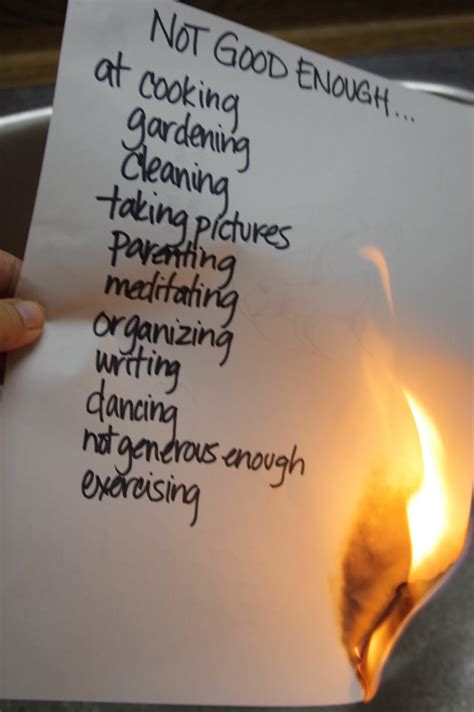 NOT GOOD ENOUGH...
at cooking
gardening
cleaning
taking pictures
parenting
meditating
organizing
writing
dancing
not generous enough
exercising